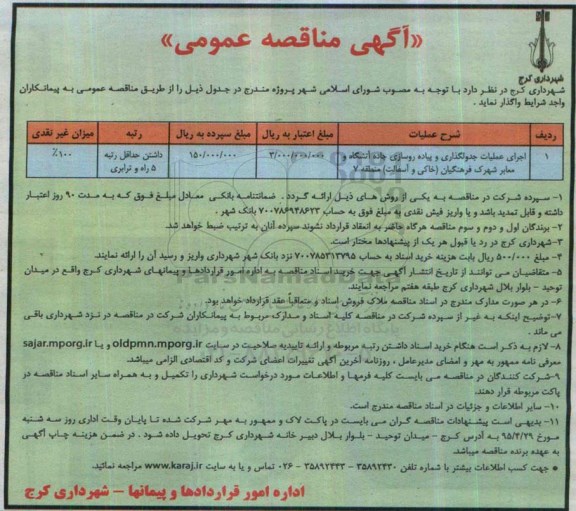 شهرداری کرج
«آگهی مناقصه عمومی»
شهرداری کرج در نظر دارد با توجه به مصوب شورای اسلامی شهر پروژه مندرج در جدول ذیل را از طریق مناقصه عمومی به پیمانکاران
واجد شرایط واگذار نماید .
ردیف شرح عملیات مبلغ اعتبار به ریال مبلغ سپرده به ریال رتبه میزان غیر نقدی
۱ اجرای عملیات جدولگذاری و پیاده روسازی جاده آتشگاه و ۳/۰۰۰/۰۰۰/۰۰۰ ۱۵۰/۰۰۰/۰۰۰ داشتن حداقل رتبه ۱۰۰٪
معابر شهرک فرهنگیان (خاکی و آسفالت) منطقه ۷ ۵ راه و ترابری
۱- سپرده شرکت در مناقصه به یکی از روش های ذیل ارائه گردد . ضمانتنامه بانکی معادل مبلغ فوق که به مدت ۹۰ روز اعتبار
داشته و قابل تمدید باشد و یا واریز فیش نقدی به مبلغ فوق به حساب ۷۰۰۷۸۶۹۴۸۶۲۳ بانک شهر .
۲- برندگان اول و دوم و سوم مناقصه هرگاه حاضر به انعقاد قرارداد نشوند سپرده آنان به ترتیب ضبط خواهد شد.
۳- شهرداری کرج در رد یا قبول هر یک از پیشنهادها مختار است.
۴- مبلغ ۵۰۰/۰۰۰ ریال بابت هزینه خرید اسناد به حساب ۷۰۰۷۸۵۳۱۳۷۹۵ نزد بانک شهر شهرداری واریز و رسید آن را ارائه نمایند.
۵- متقاضیان می توانند از تاریخ انتشار آگهی جهت خرید اسناد مناقصه به اداره امور قراردادها و پیمانهای شهرداری کرج واقع در میدان
توحید - بلوار بلال شهرداری کرج طبقه هفتم مراجعه نمایند.
۶- در هر صورت مدارک مندرج در اسناد مناقصه ملاک فروش اسناد و متعاقباً عقد قرارداد خواهد بود.
۷- توضیح اینکه به غیر از سپرده شرکت در مناقصه کلیه اسناد و مدارک مربوط به پیمانکاران شرکت در مناقصه در نزد شهرداری باقی
می ماند .
۸- لازم به ذکر است هنگام خرید اسناد داشتن رتبه مربوطه و ارائه تاییدیه صلاحیت در سایت oldpmn.mporg.ir و یا sajar.mporg.ir
معرفی نامه ممهور به مهر و امضای مدیرعامل ، روزنامه آخرین آگهی تغییرات اعضای شرکت و کد اقتصادی الزامی میباشد.
۹- شرکت کنندگان در مناقصه می بایست کلیه فرمها و اطلاعات مورد درخواست شهرداری را تکمیل و به همراه سایر اسناد مناقصه در
پاکت مربوطه قرار دهند.
۱۰- سایر اطلاعات و جزئیات در اسناد مناقصه مندرج است.
۱۱- بدیهی است پیشنهادات مناقصه گران می بایست در پاکت لاک و ممهور به مهر شرکت شده تا پایان وقت اداری روز سه شنبه
مورخ ۹۵/۴/۲۹ به آدرس کرج - میدان توحید - بلوار بلال دبیر خانه شهرداری کرج تحویل داده شود . در ضمن هزینه چاپ آگهی
به عهده برنده مناقصه میباشد.
● جهت کسب اطلاعات بیشتر با شماره تلفن ۳۵۸۹۲۴۳۰ - ۳۵۸۹۲۴۳۳ - ۰۲۶ تماس و یا به سایت www.karaj.ir مراجعه نمائید.
اداره امور قراردادها و پیمانها - شهرداری کرج